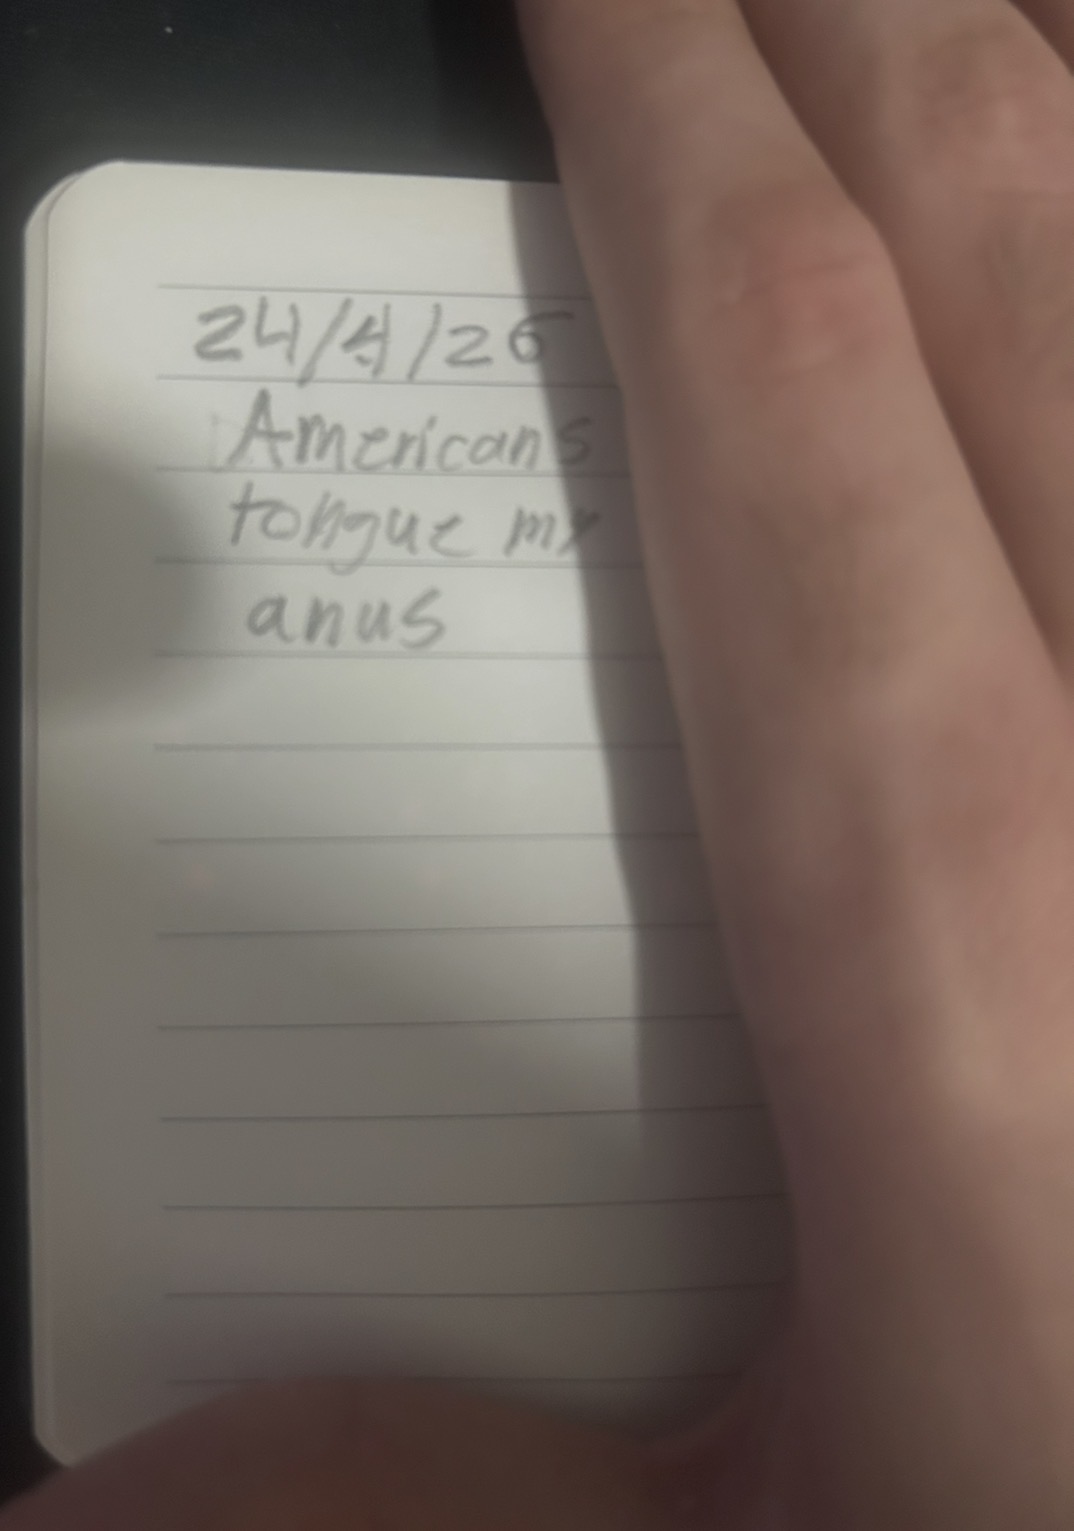 24/4/26
Americans
tongue my
anus